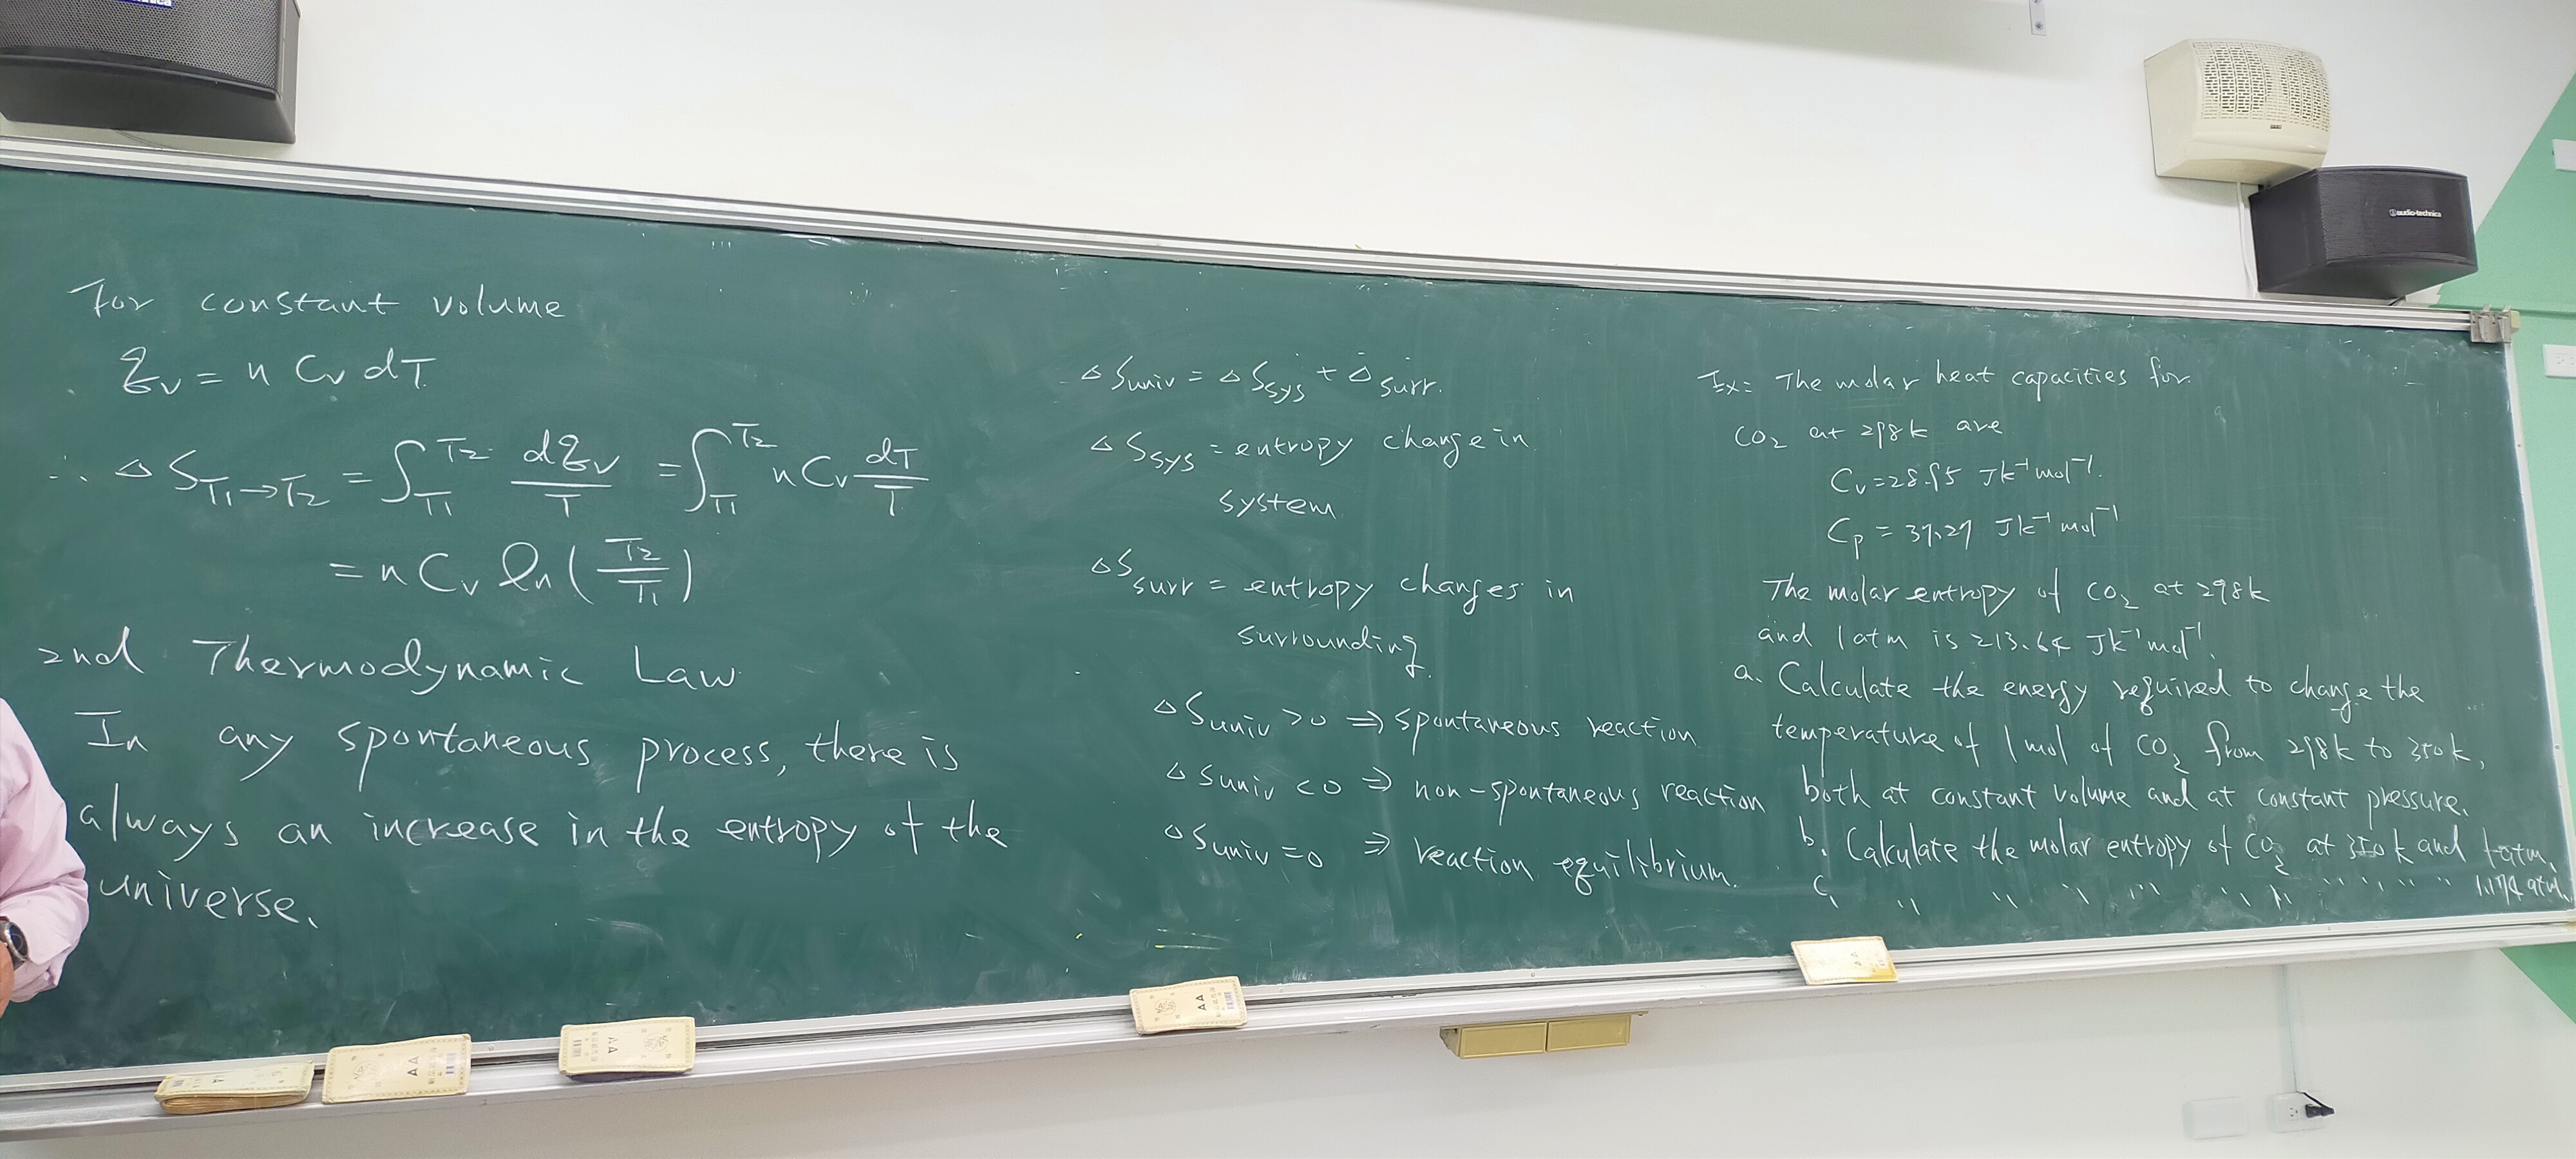 For constant volume
qv = n Cv dT
∴ ΔS T1→T2 = ∫T1 T2 dqv/T = ∫T1 T2 n Cv dT/T
= n Cv ln(T2/T1)
2nd Thermodynamic Law
In any spontaneous process, there is
always an increase in the entropy of the
universe.
ΔSuniv = ΔSsys + Δsurr.
ΔSsys = entropy change in
system
ΔSsurr = entropy changes in
surrounding.
ΔSuniv > 0 ⇒ spontaneous reaction
ΔSuniv < 0 ⇒ non-spontaneous reaction
ΔSuniv = 0 ⇒ reaction equilibrium.
Ex: The molar heat capacities for
CO2 at 298k are
Cv = 28.95 Jk⁻¹mol⁻¹.
Cp = 37.27 Jk⁻¹mol⁻¹
The molar entropy of CO2 at 298k
and 1 atm is 213.64 Jk⁻¹mol⁻¹.
a. Calculate the energy required to change the
temperature of 1 mol of CO2 from 298k to 350k,
both at constant volume and at constant pressure.
b. Calculate the molar entropy of CO2 at 350k and 1 atm.
c. " " " " " " " " " " 1.174 atm
audio-technica